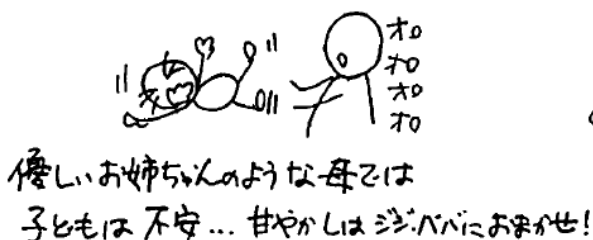 オロ
オロ
オロ
オロ
優しいお姉ちゃんのような母では
子どもは不安…甘やかしはジジ・ババにおまかせ!